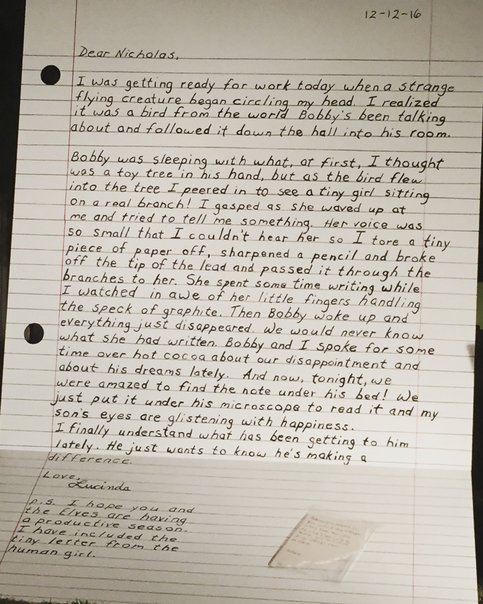 12-12-16
Dear Nicholas,
I was getting ready for work today when a strange
flying creature began circling my head. I realized
it was a bird from the world Bobby's been talking
about and followed it down the hall into his room.
Bobby was sleeping with what, at first, I thought
was a toy tree in his hand, but as the bird flew
into the tree I peered in to see a tiny girl sitting
on a real branch! I gasped as she waved up at
me and tried to tell me something. Her voice was
so small that I couldn't hear her so I tore a tiny
piece of paper off, sharpened a pencil and broke
off the tip of the lead and passed it through the
branches to her. She spent some time writing while
I watched in awe of her little fingers handling
the speck of graphite. Then Bobby woke up and
everything just disappeared. We would never know
what she had written. Bobby and I spoke for some
time over hot cocoa about our disappointment and
about his dreams lately. And now, tonight, we
were amazed to find the note under his bed! We
just put it under his microscope to read it and my
son's eyes are glistening with happiness.
I finally understand what has been getting to him
lately. He just wants to know he's making a
difference.
Love,
Lucinda
p.s. I hope you and
the Elves are having
a productive season.
I have included the
tiny letter from the
human girl.